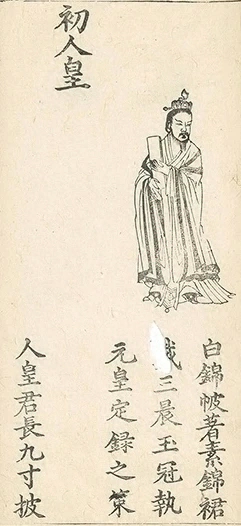 白錦帔著素錦裙
三晨玉冠執
元皇定録之策
初人皇
人皇君長九寸披